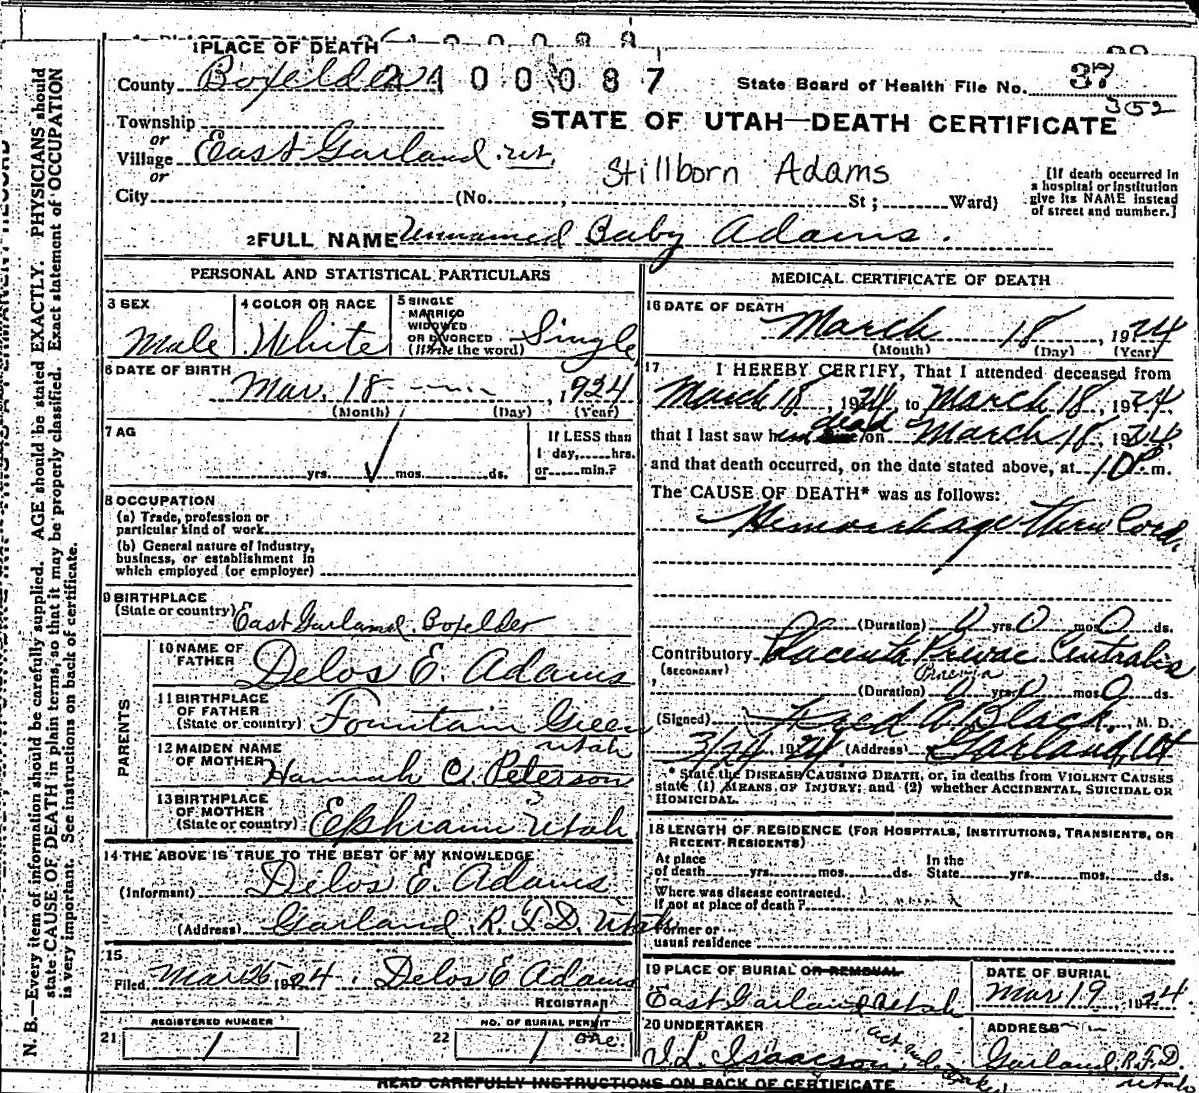 1 PLACE OF DEATH
County Boxelder 2400087 State Board of Health File No. 37
352
Township
or
STATE OF UTAH—DEATH CERTIFICATE
Village East Garland. ut.
or
Stillborn Adams
City (No. , St; Ward)
[If death occurred in
a hospital or institution
give its NAME instead
of street and number.]
2 FULL NAME Unnamed Baby Adams.
PERSONAL AND STATISTICAL PARTICULARS
3 SEX
Male
4 COLOR OR RACE
White
5 SINGLE
MARRIED
WIDOWED
OR DIVORCED
(Write the word)
Single
6 DATE OF BIRTH
Mar. 18 , 1924
(Month) (Day) (Year)
7 AG
yrs. mos. ds.
If LESS than
1 day, hrs.
or min.?
8 OCCUPATION
(a) Trade, profession or
particular kind of work
(b) General nature of industry,
business, or establishment in
which employed (or employer)
9 BIRTHPLACE
(State or country) East Garland. Boxelder
PARENTS
10 NAME OF
FATHER Delos E. Adams
11 BIRTHPLACE
OF FATHER
(State or country) Fountain Green
Utah
12 MAIDEN NAME
OF MOTHER Hannah C. Peterson
13 BIRTHPLACE
OF MOTHER
(State or country) Ephraim Utah
14 THE ABOVE IS TRUE TO THE BEST OF MY KNOWLEDGE
(Informant) Delos E. Adams
(Address) Garland. R.F.D. Utah
15
Filed Mar 25 1924. Delos E Adams
REGISTRAR
REGISTERED NUMBER
21 1
NO. OF BURIAL PERMIT
22 1 one.
MEDICAL CERTIFICATE OF DEATH
16 DATE OF DEATH
March 18 , 1924
(Month) (Day) (Year)
17 I HEREBY CERTIFY, That I attended deceased from
March 18, 1924, to March 18, 1924
that I last saw him dead on March 18, 1924,
and that death occurred, on the date stated above, at 10 P. m.
The CAUSE OF DEATH* was as follows:
Hemorrhage thru Cord.
(Duration) 0 yrs. 0 mos. 0 ds.
Contributory Placenta Previae Centralis
(SECONDARY) Previa
(Duration) 0 yrs. 0 mos. 0 ds.
(Signed) Fred A. Black. M. D.
3/24 1924 (Address) Garland Ut
* State the DISEASE CAUSING DEATH, or, in deaths from VIOLENT CAUSES
state (1) MEANS OF INJURY; and (2) whether ACCIDENTAL, SUICIDAL OR
HOMICIDAL.
18 LENGTH OF RESIDENCE (FOR HOSPITALS, INSTITUTIONS, TRANSIENTS, OR
RECENT RESIDENTS)
At place
of death yrs. mos. ds.
In the
State yrs. mos. ds.
Where was disease contracted,
if not at place of death?
Former or
usual residence
19 PLACE OF BURIAL OR REMOVAL
East Garland Utah
DATE OF BURIAL
Mar. 19 1924.
20 UNDERTAKER
J. L. Isaacson,
ADDRESS
Garland, R.F.D.
Utah
READ CAREFULLY INSTRUCTIONS ON BACK OF CERTIFICATE
N. B.—Every item of information should be carefully supplied. AGE should be stated EXACTLY. PHYSICIANS should
state CAUSE OF DEATH in plain terms, so that it may be properly classified. Exact statement of OCCUPATION
is very important. See instructions on back of certificate.